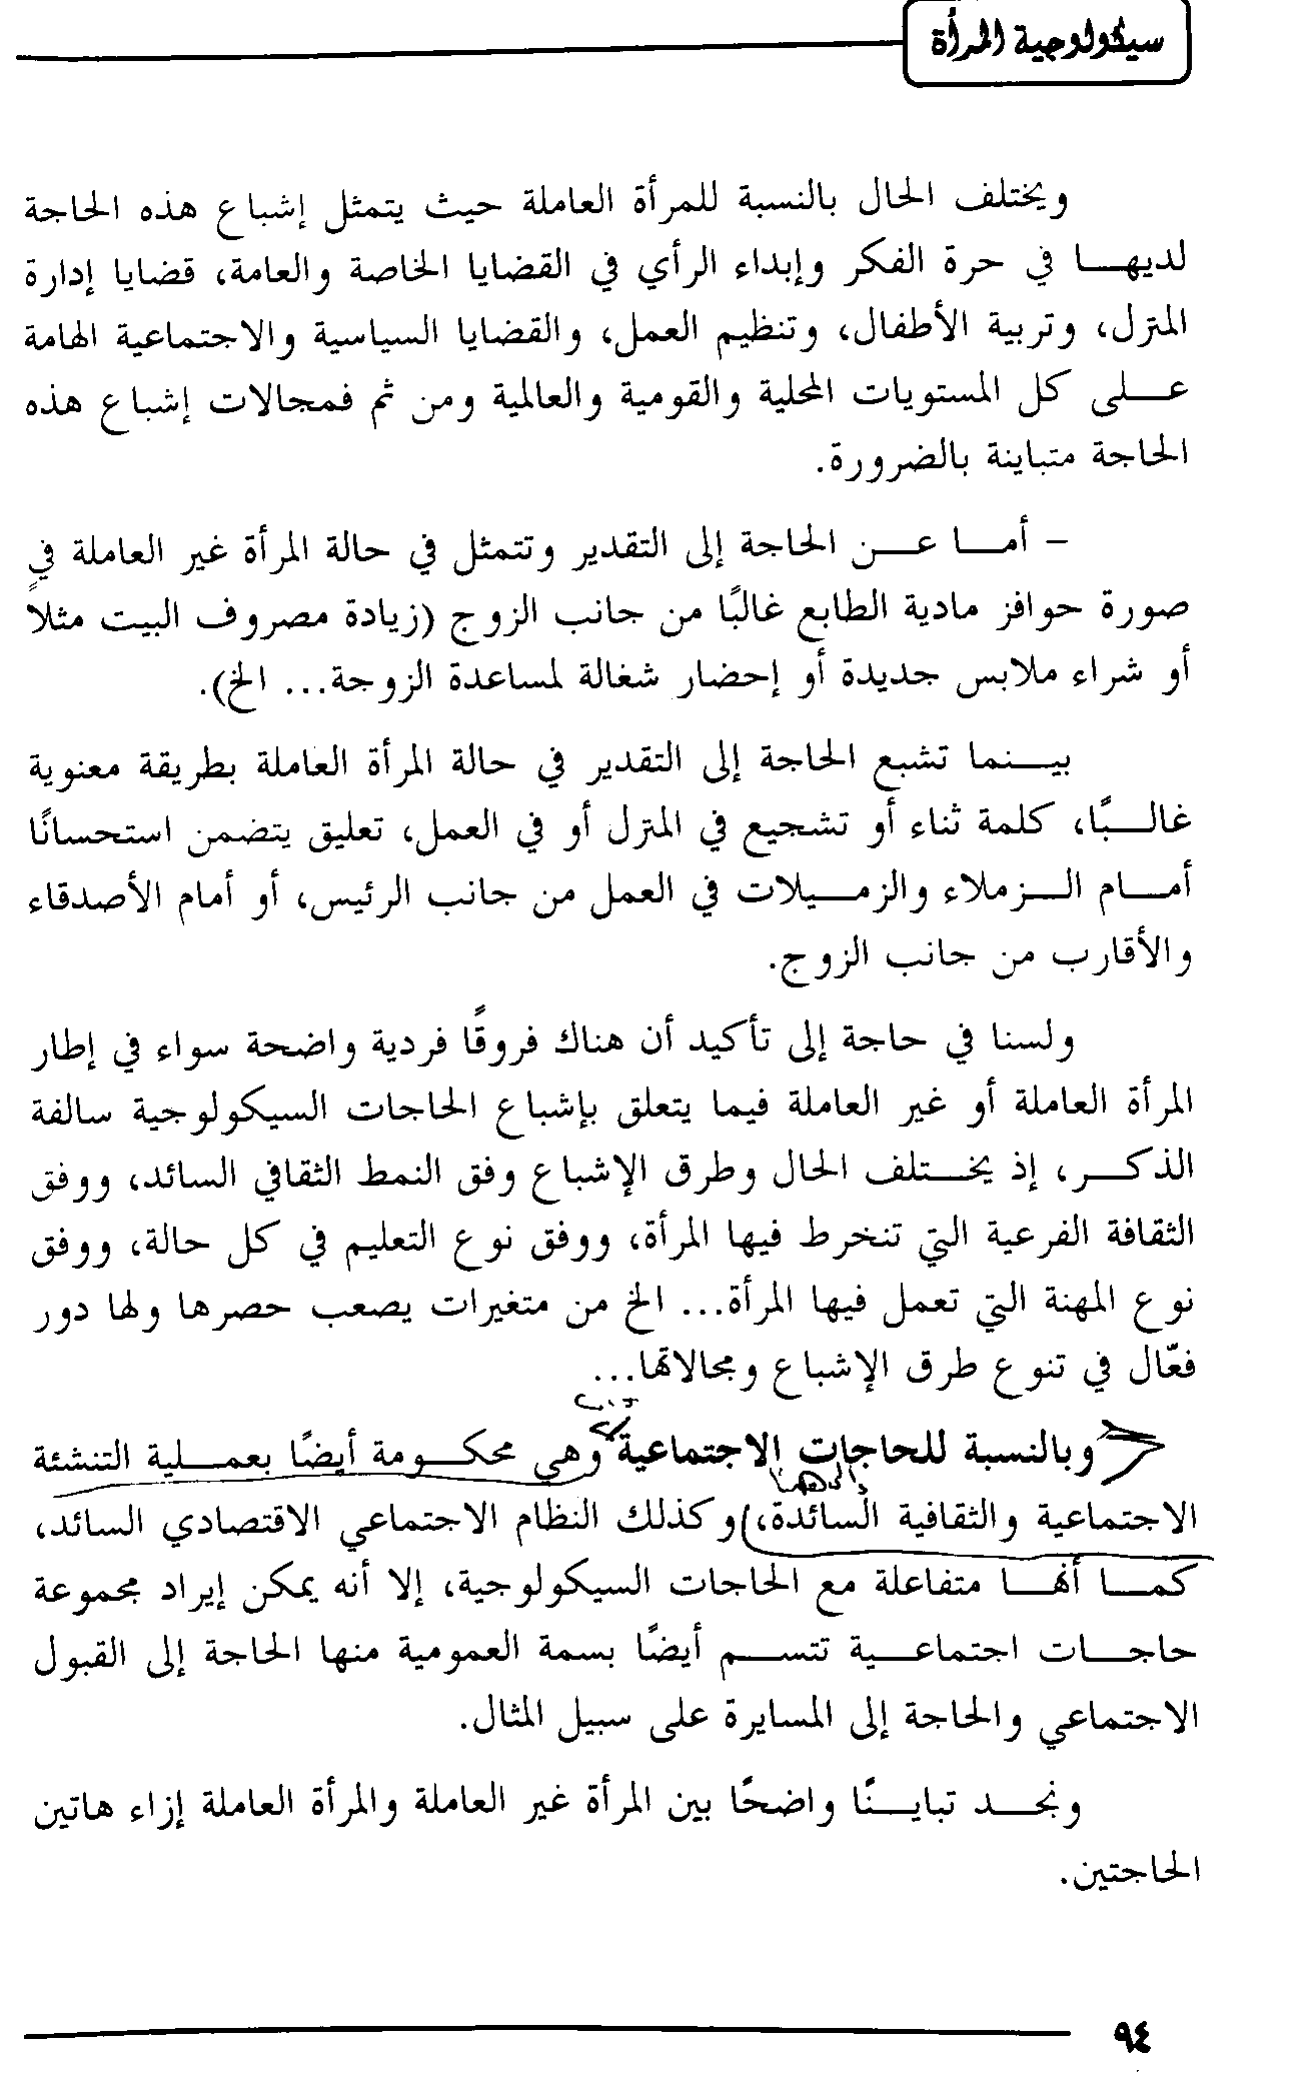 سيكولوجية المرأة
ويختلف الحال بالنسبة للمرأة العاملة حيث يتمثل إشباع هذه الحاجة
لديهـــا في حرة الفكر وإبداء الرأي في القضايا الخاصة والعامة، قضايا إدارة
المنزل، وتربية الأطفال، وتنظيم العمل، والقضايا السياسية والاجتماعية الهامة
علـــى كل المستويات المحلية والقومية والعالمية ومن ثم فمجالات إشباع هذه
الحاجة متباينة بالضرورة.
- أمـــا عـــن الحاجة إلى التقدير وتتمثل في حالة المرأة غير العاملة في
صورة حوافز مادية الطابع غالبًا من جانب الزوج (زيادة مصروف البيت مثلاً
أو شراء ملابس جديدة أو إحضار شغالة لمساعدة الزوجة... الخ).
بيـــنما تشبع الحاجة إلى التقدير في حالة المرأة العاملة بطريقة معنوية
غالـــبًا، كلمة ثناء أو تشجيع في المنزل أو في العمل، تعليق يتضمن استحسانًا
أمـــام الـــزملاء والزمـــيلات في العمل من جانب الرئيس، أو أمام الأصدقاء
والأقارب من جانب الزوج.
ولسنا في حاجة إلى تأكيد أن هناك فروقًا فردية واضحة سواء في إطار
المرأة العاملة أو غير العاملة فيما يتعلق بإشباع الحاجات السيكولوجية سالفة
الذكـــر، إذ يخـــتلف الحال وطرق الإشباع وفق النمط الثقافي السائد، ووفق
الثقافة الفرعية التي تنخرط فيها المرأة، ووفق نوع التعليم في كل حالة، ووفق
نوع المهنة التي تعمل فيها المرأة... الخ من متغيرات يصعب حصرها ولها دور
فعّال في تنوع طرق الإشباع ومجالاتها...
وبالنسبة للحاجات الاجتماعية وهي محكـــومة أيضًا بعمـــلية التنشئة
الاجتماعية والثقافية السائدة، وكذلك النظام الاجتماعي الاقتصادي السائد،
كمـــا أنهـــا متفاعلة مع الحاجات السيكولوجية، إلا أنه يمكن إيراد مجموعة
حاجـــات اجتماعـــية تتســـم أيضًا بسمة العمومية منها الحاجة إلى القبول
الاجتماعي والحاجة إلى المسايرة على سبيل المثال.
ونجـــد تبايـــنًا واضحًا بين المرأة غير العاملة والمرأة العاملة إزاء هاتين
الحاجتين.
٩٤